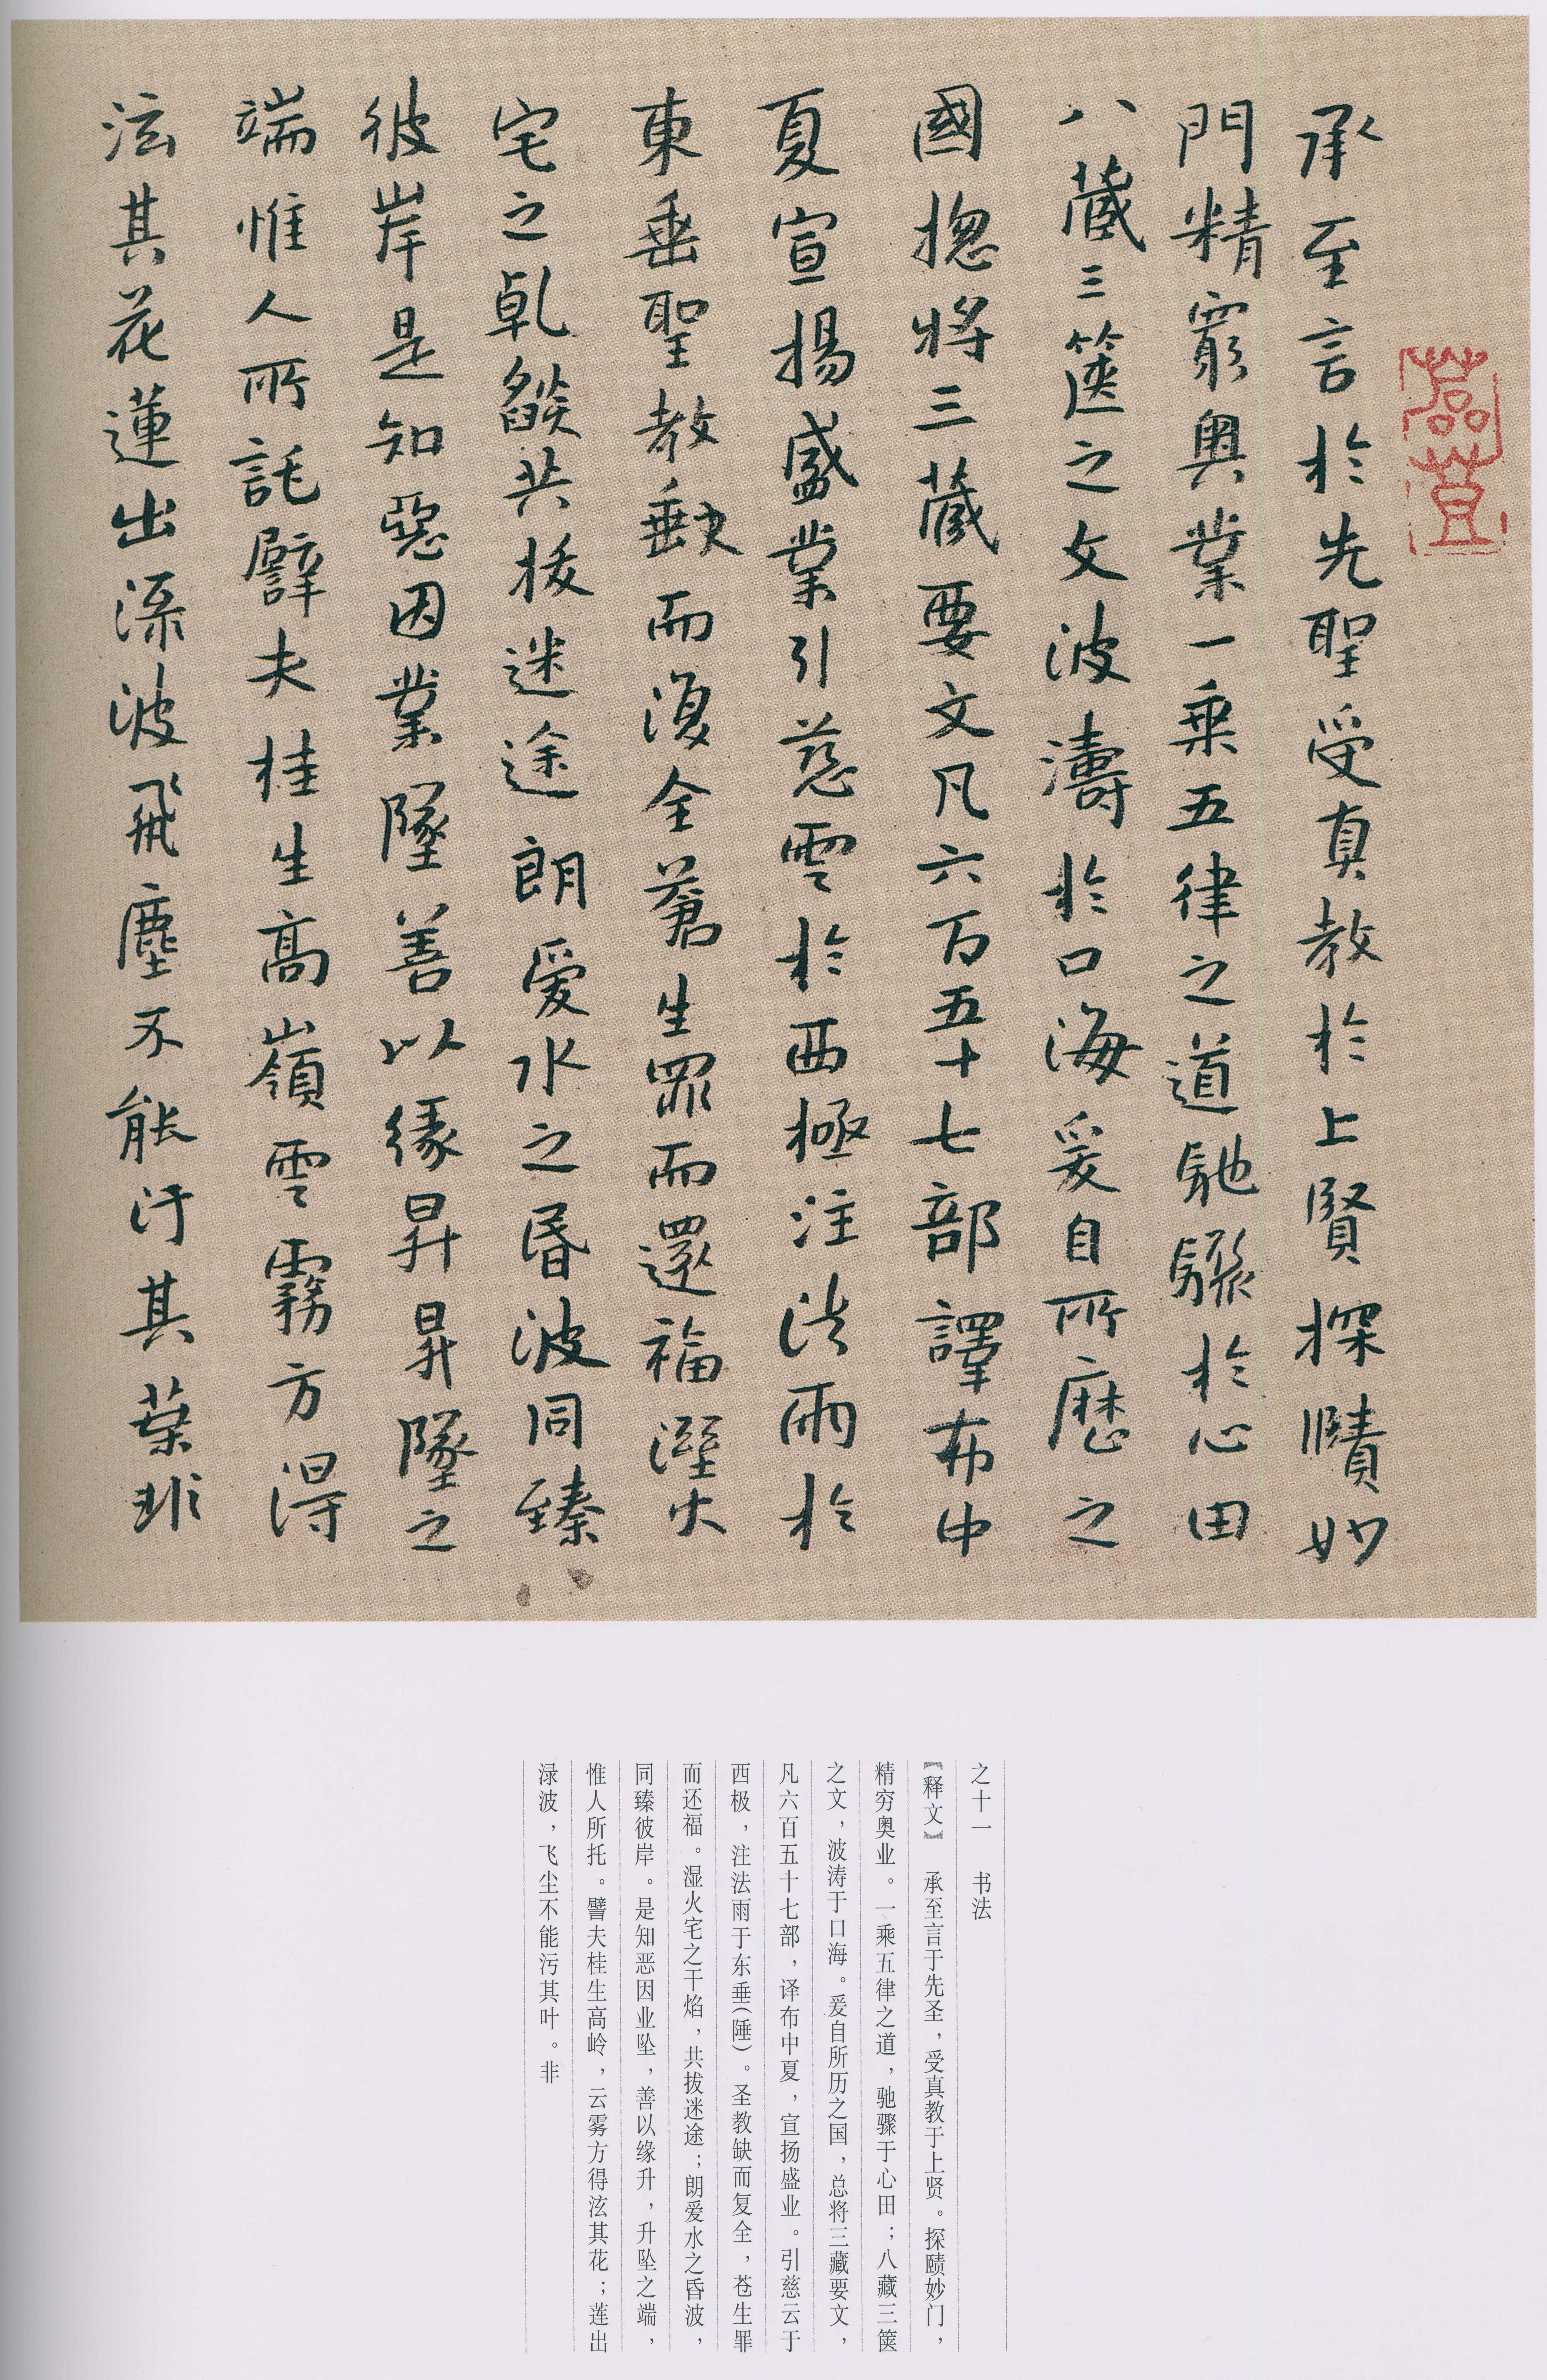 承至言於先聖受真教於上賢探賾妙
門精窮奧業一乘五律之道馳驟於心田
八藏三篋之文波濤於口海爰自所歷之
國捴將三藏要文凡六百五十七部譯布中
夏宣揚盛業引慈雲於西極注法雨於
東垂聖教缺而復全蒼生罪而還福濕火
宅之乹燄共拔迷途朗愛水之昏波同臻
彼岸是知惡因業墜善以緣昇昇墜之
端惟人所託譬夫桂生高嶺雲霧方得
泫其花蓮出渌波飛塵不能汙其葉非
之十一 书法
【释文】 承至言于先圣，受真教于上贤。探赜妙门，
精穷奥业。一乘五律之道，驰骤于心田；八藏三箧
之文，波涛于口海。爰自所历之国，总将三藏要文，
凡六百五十七部，译布中夏，宣扬盛业。引慈云于
西极，注法雨于东垂(陲)。圣教缺而复全，苍生罪
而还福。湿火宅之干焰，共拔迷途；朗爱水之昏波，
同臻彼岸。是知恶因业坠，善以缘升，升坠之端，
惟人所托。譬夫桂生高岭，云雾方得泫其花；莲出
渌波，飞尘不能污其叶。非